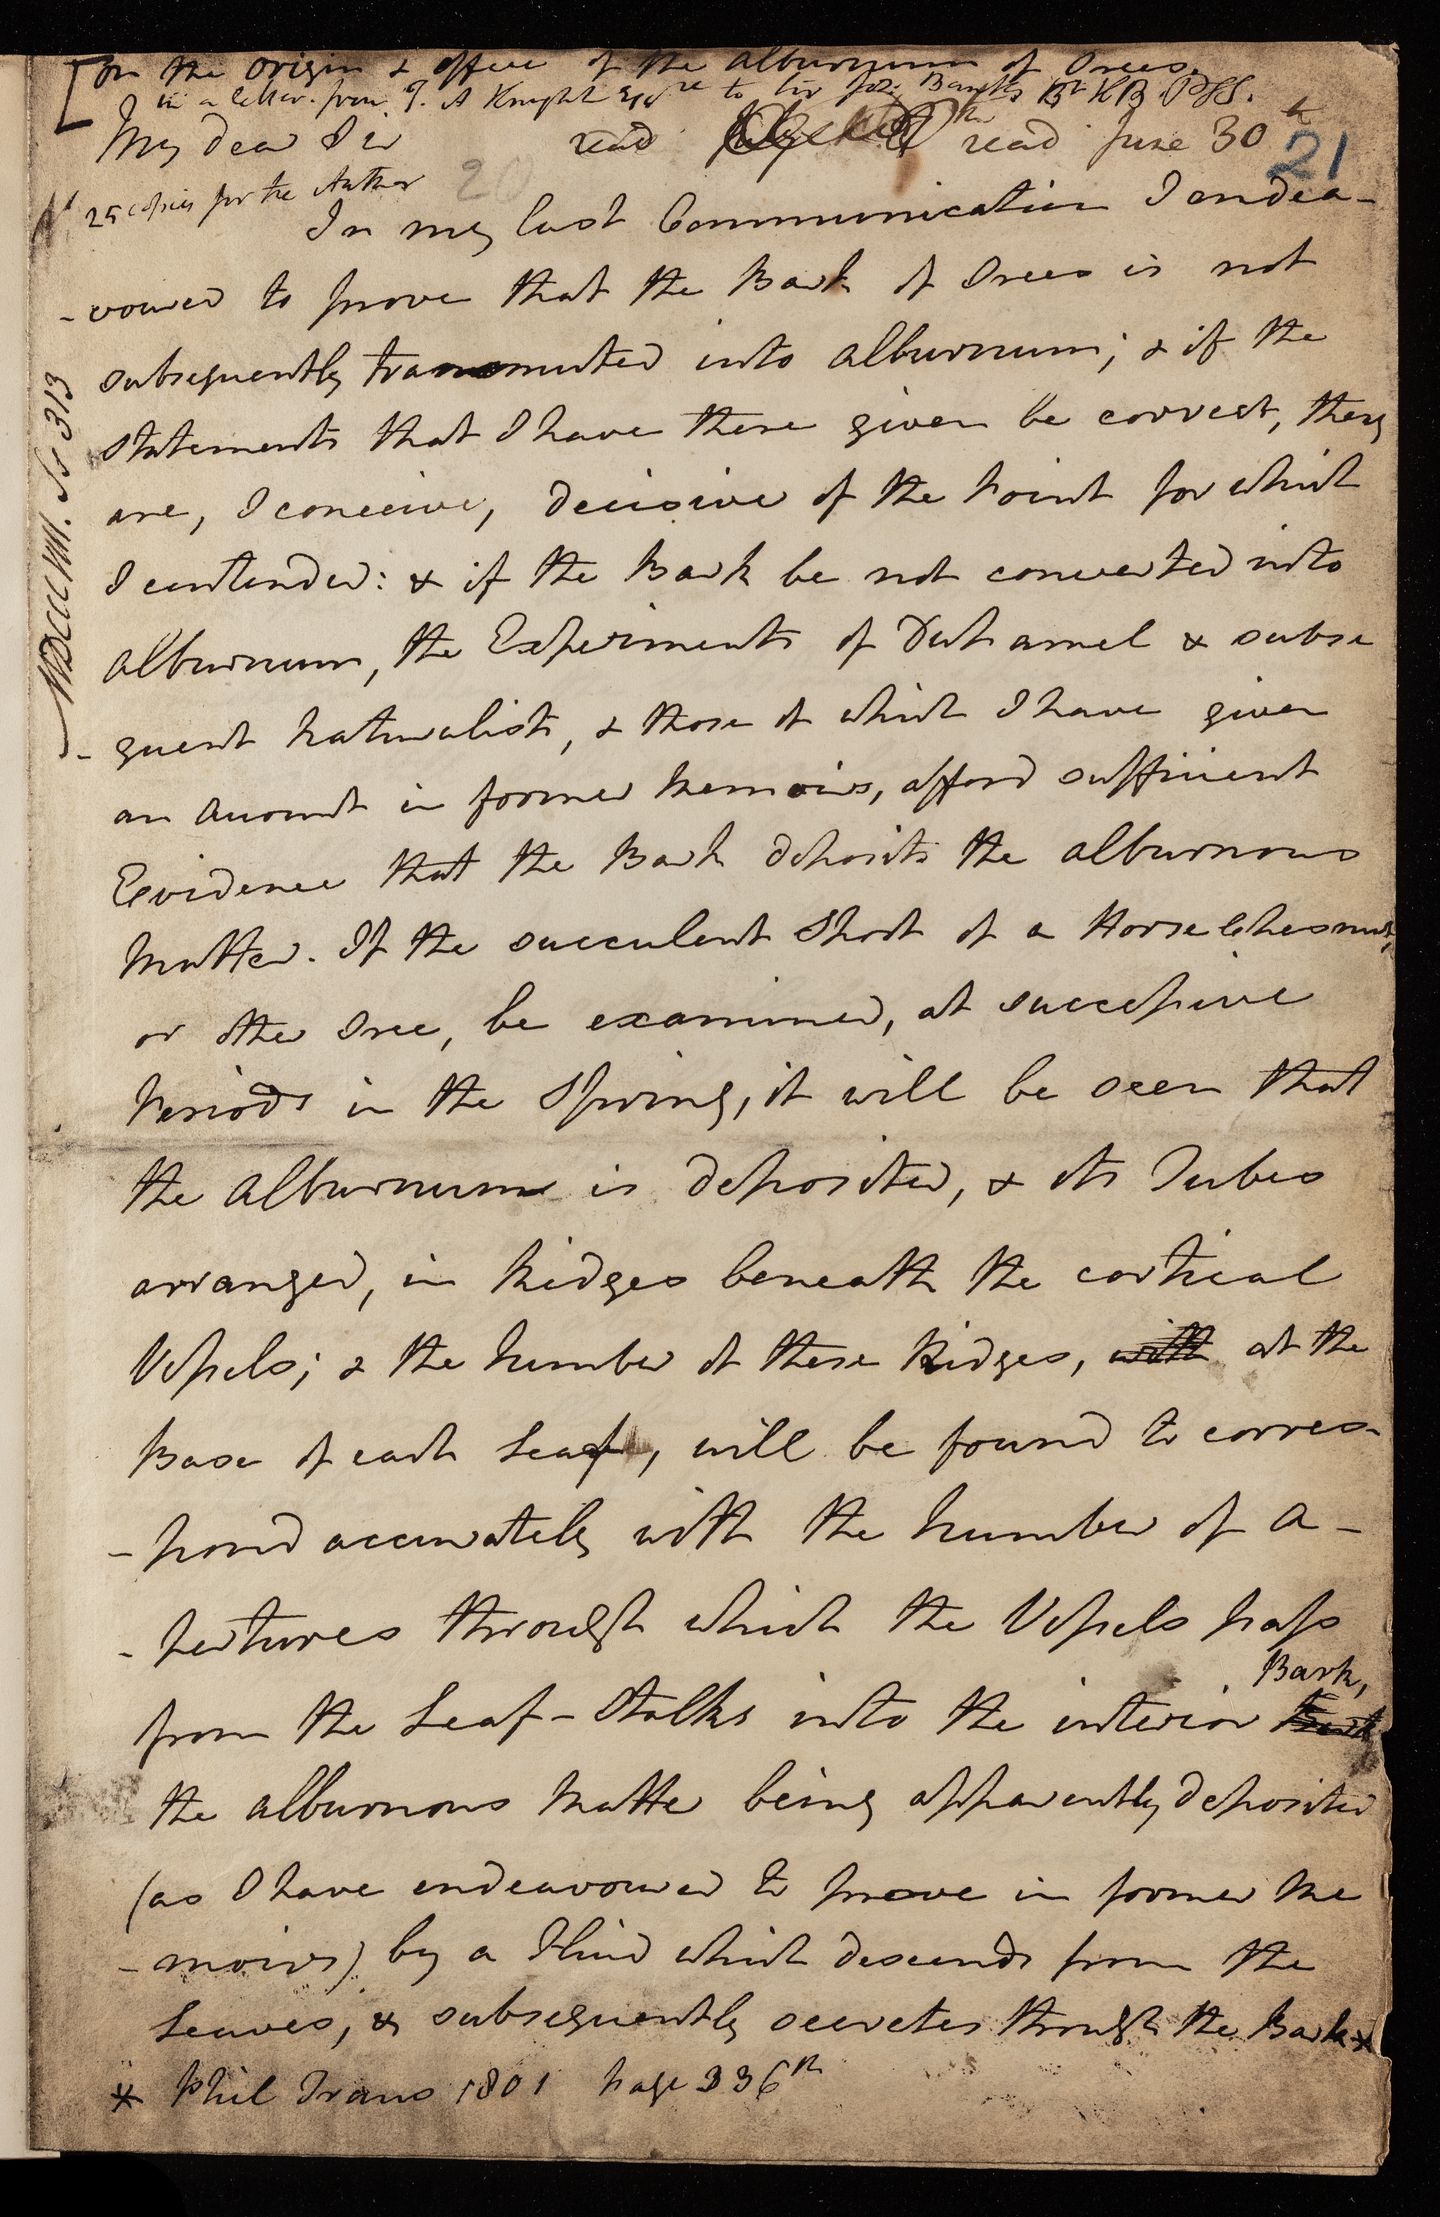 On the origin & office of the alburnum of Trees.
in a letter from T. A Knight Esqre to Sir Jos: Banks Bt KB PRS.
My dear Sir read read June 30th 21
20
25 copies for the Author
In my last Communication I endea-
-voured to prove that the Bark of Trees is not
subsequently transmuted into alburnum; & if the
statements that I have there given be correct, they
are, I conceive, decisive of the Point for which
I contended: & if the Bark be not converted into
alburnum, the Experiments of Duhamel & subse
-quent Naturalists, & those of which I have given
an account in former Memoirs, afford sufficient
Evidence that the Bark deposits the alburnous
Matter. If the succulent Shoot of a Horse Chesnut,
or other Tree, be examined, at successive
Periods in the Spring, it will be seen that
the alburnum is deposited, & its Tubes
arranged, in Ridges beneath the cortical
Vessels; & the Number of these Ridges, with at the
Base of each Leaf, will be found to corres-
-pond accurately with the Number of a-
-pertures through which the Vessels pass
Bark,
from the Leaf-Stalks into the interior Bark
the alburnous Matter being apparently deposited
(as I have endeavoured to prove in former Me
-moirs) by a Fluid which descends from the
Leaves, & subsequently secretes through the Bark *
* Phil Trans 1801 Page 336th
MDCCCVIII. 313